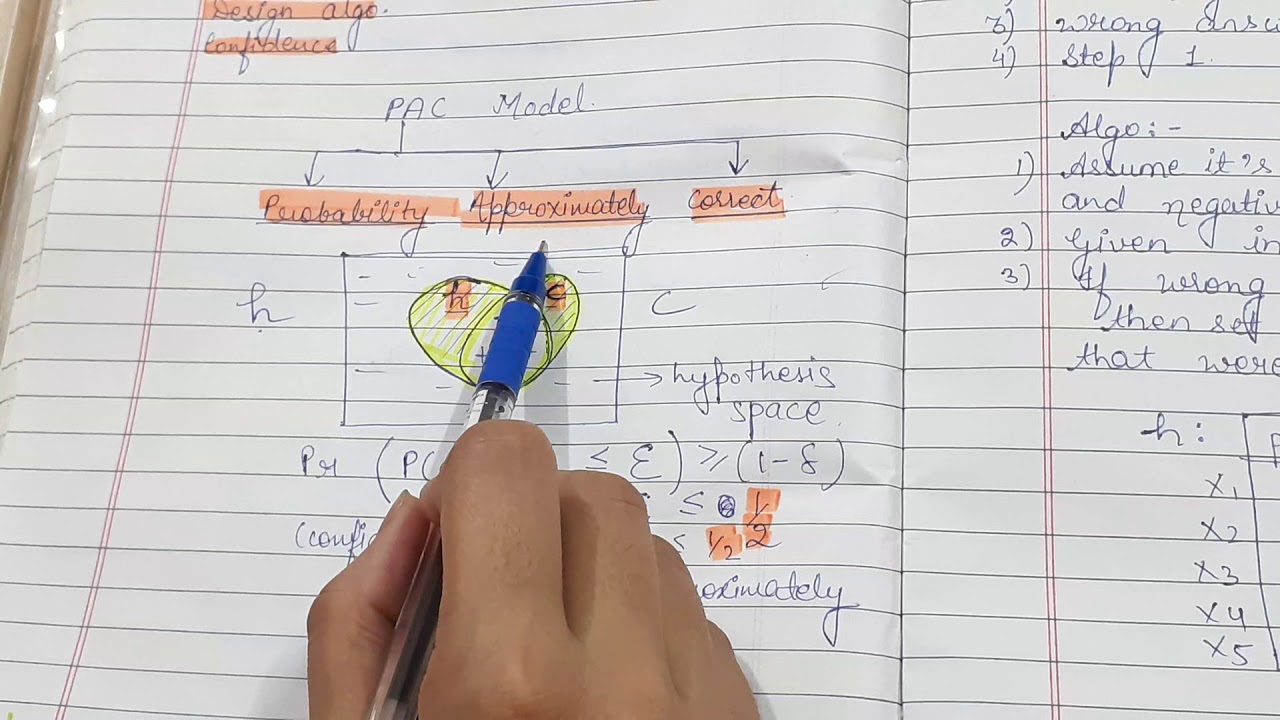 Design algo.
Confidence
PAC Model.
Probability Approximately Correct
h
h
c
C
hypothesis
space
Pr (P( ≤ ε) ≥ (1-δ)
≤ 1/2
≤ 1/2
3) wrong
4) Step 1.
Algo:-
1) Assume it's
and
2) Given in
3) If wrong
then set
that were
h:
x1
x2
x3
x4
x5